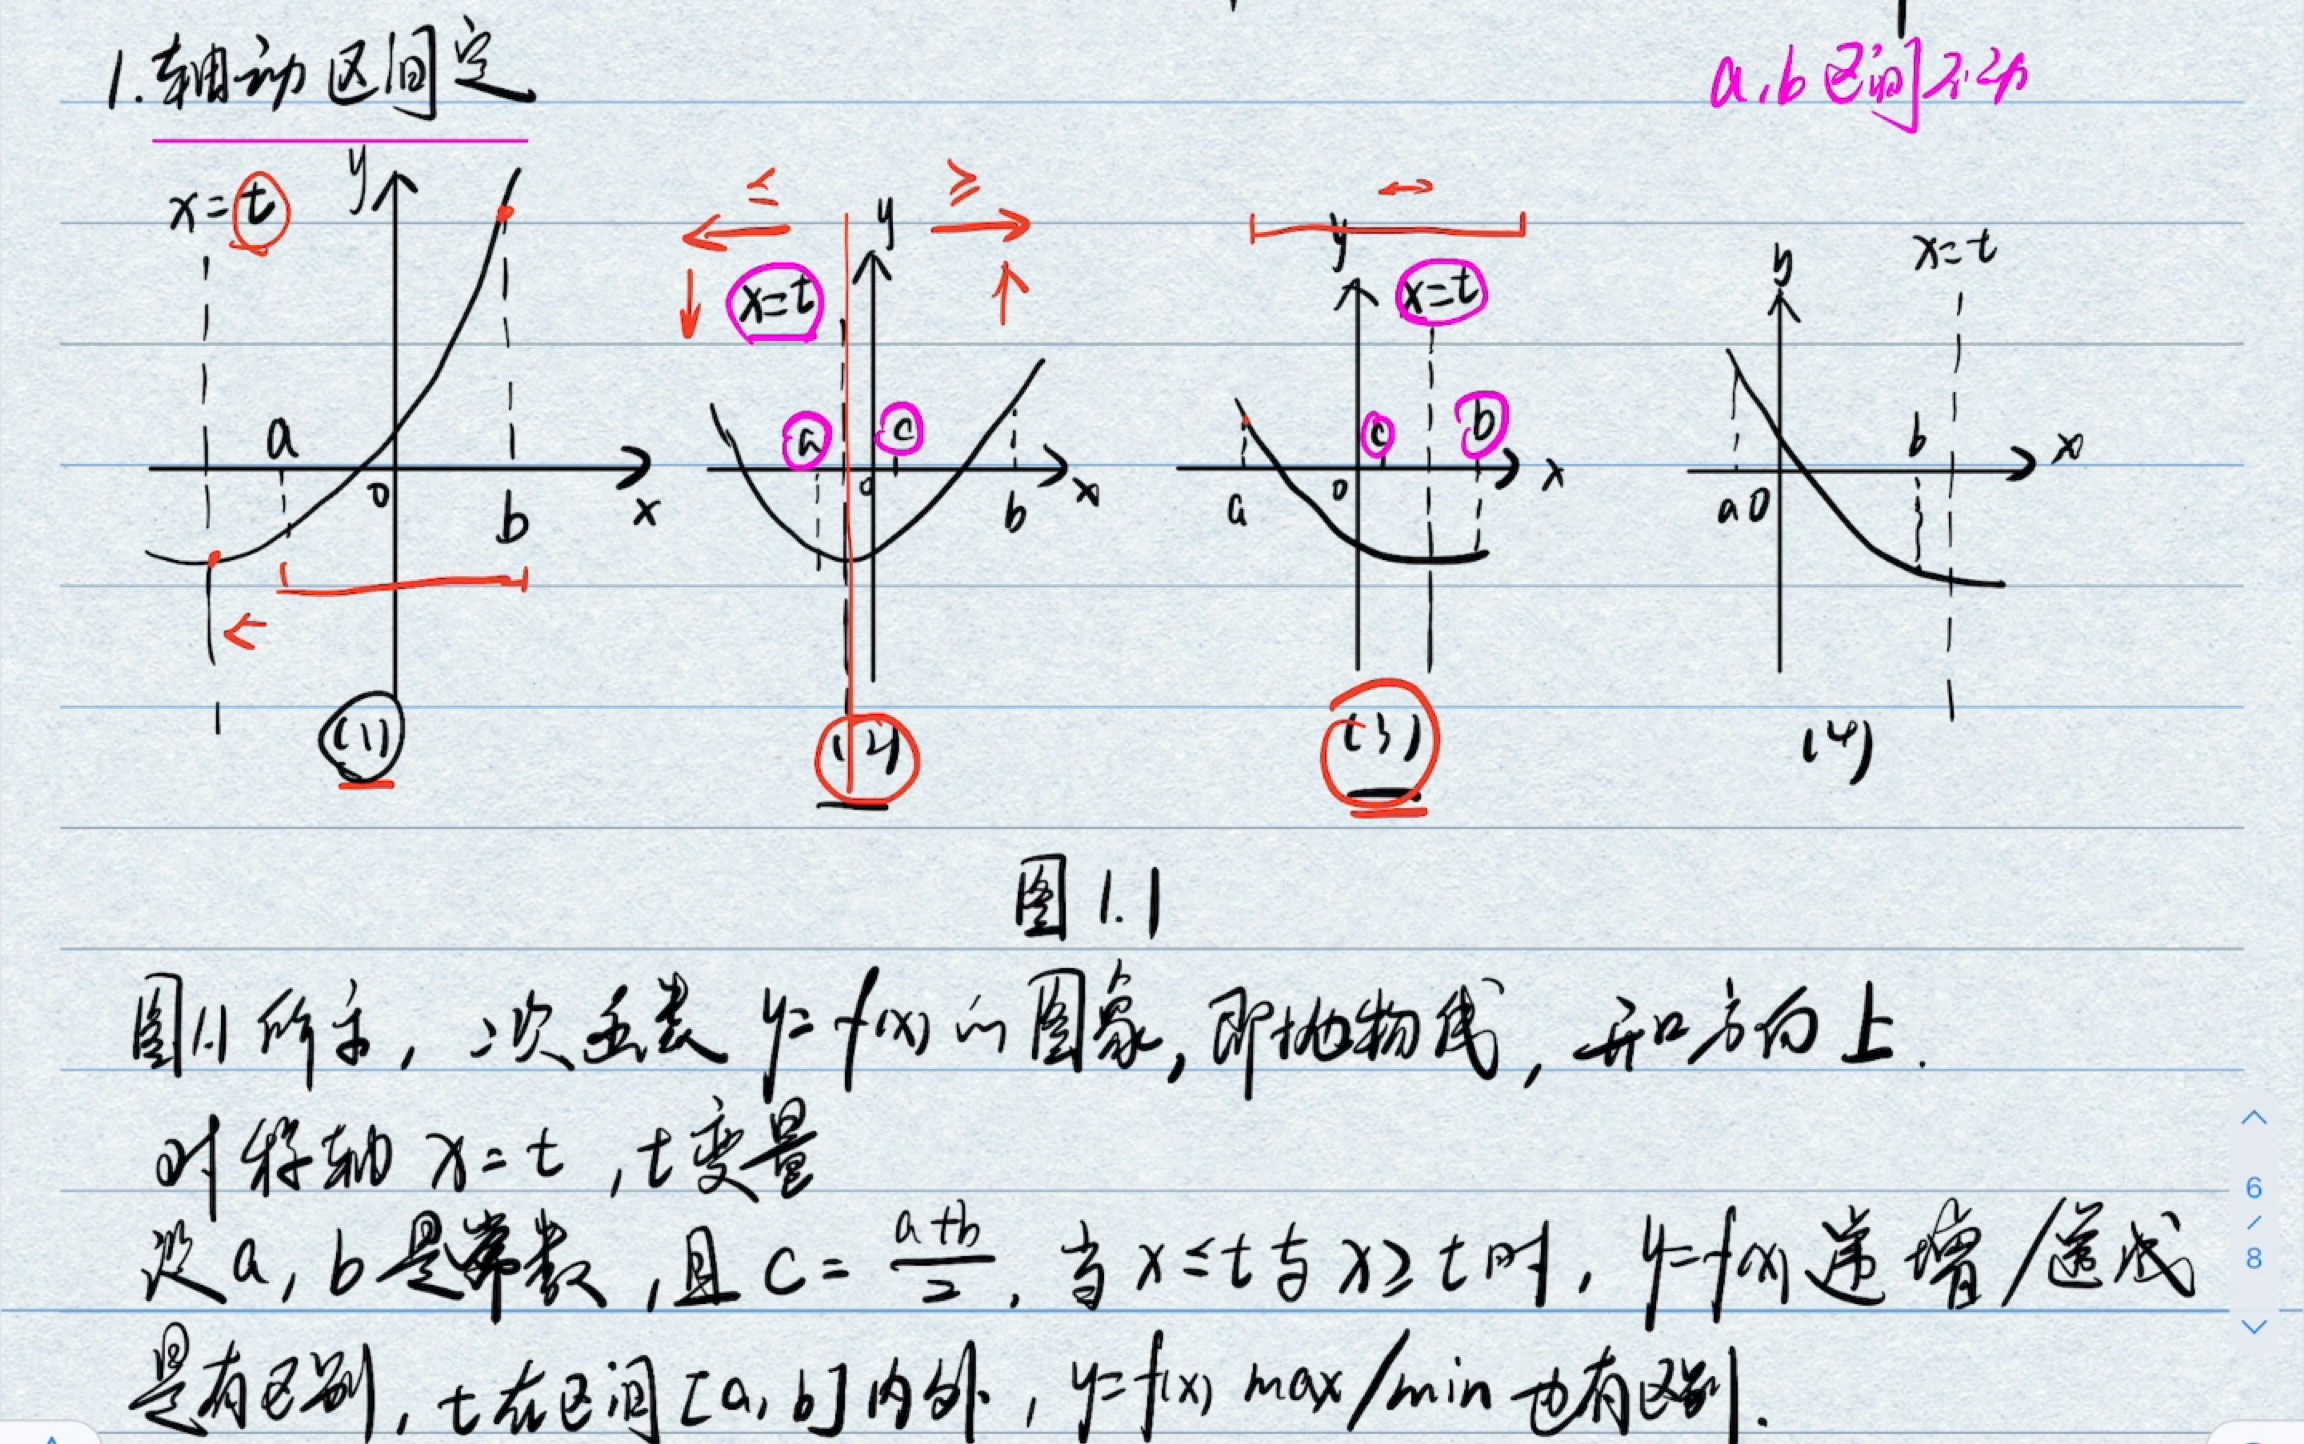 1.轴动区间定
a,b区间不动
x=t y a 0 b x (1)
≤ ≥ x=t y a c 0 b x (2)
y x=t c b a 0 x (3)
y x=t b a 0 x (4)
图1.1
图1.1所示，二次函数y=f(x)的图象，即抛物线，开口方向上.
对称轴x=t,t变量
设a,b是常数,且c=\frac{a+b}{2},当x≤t与x≥t时,y=f(x)递增/递减
是有区别,t在区间[a,b]内外,y=f(x)max/min也有区别.
6
/
8